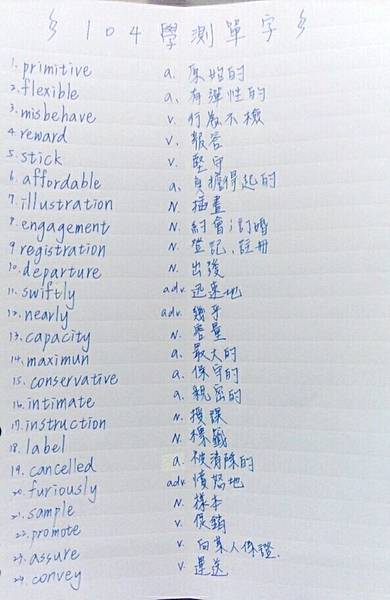 104學測單字
1. primitive a. 原始的
2. flexible a. 有彈性的
3. misbehave v. 行為不檢
4. reward v. 報答
5. stick v. 堅守
6. affordable a. 負擔得起的
7. illustration N. 插畫
8. engagement N. 約會；訂婚
9. registration N. 登記，註冊
10. departure N. 出發
11. swiftly adv. 迅速地
12. nearly adv. 幾乎
13. capacity N. 容量
14. maximun a. 最大的
15. conservative a. 保守的
16. intimate a. 親密的
17. instruction N. 授課
18. label N. 標籤
19. cancelled a. 被消除的
20. furiously adv. 憤怒地
21. sample N. 樣本
22. promote v. 促銷
23. assure v. 向某人保證.
24. convey v. 運送